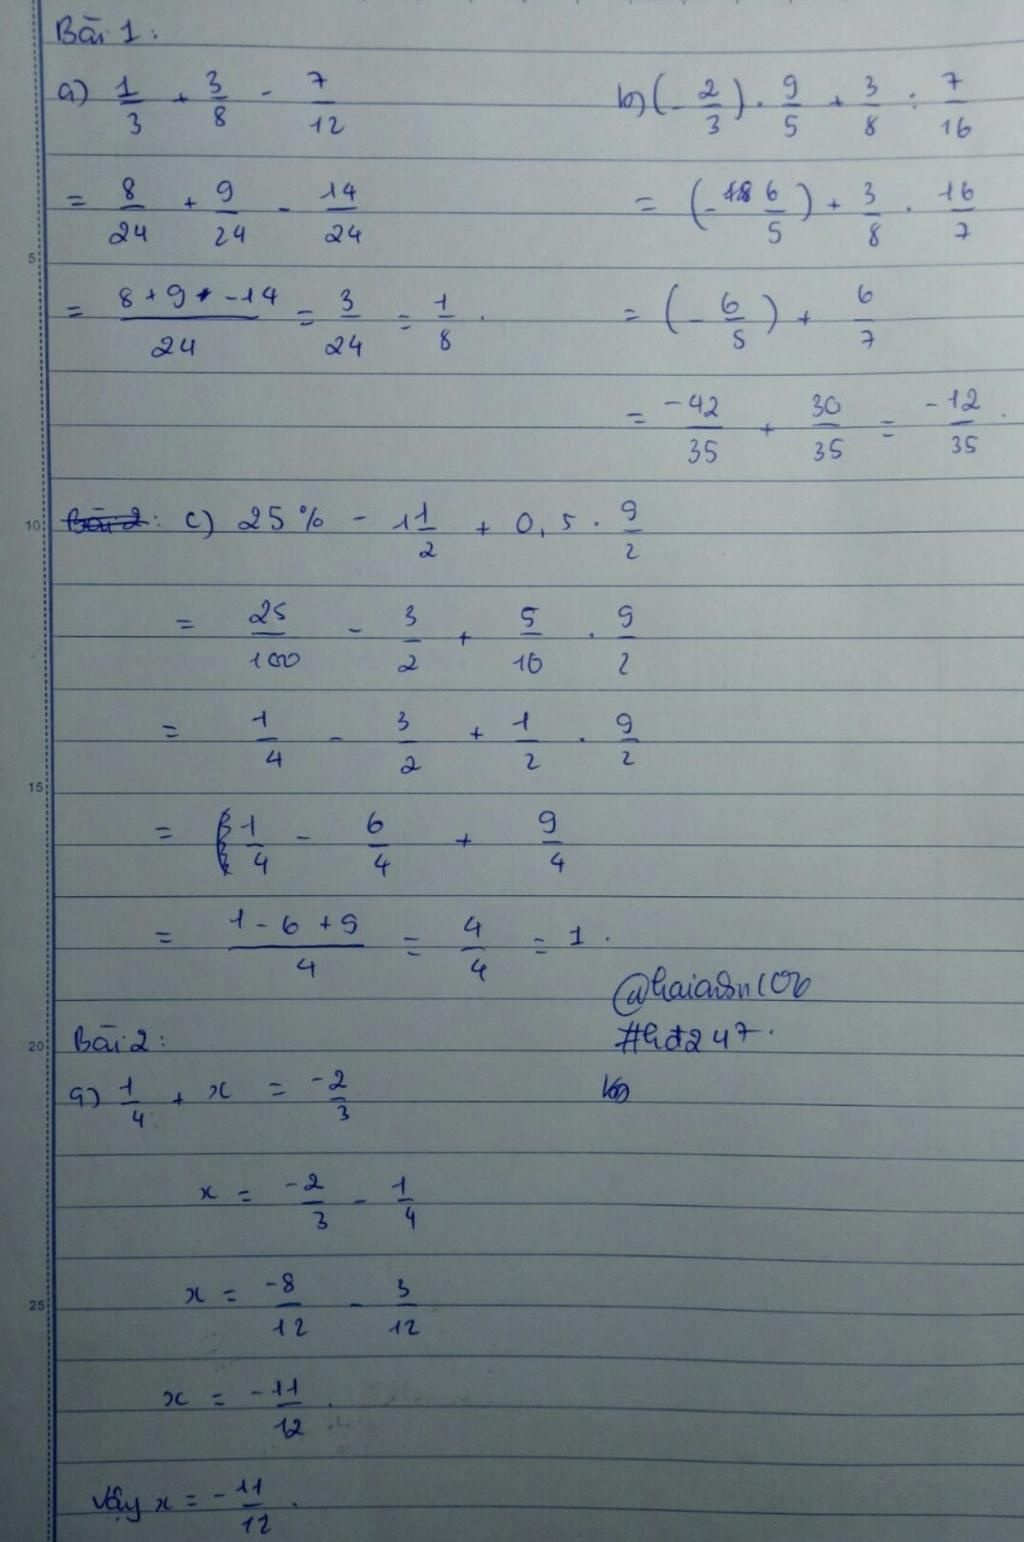 Bài 1:
a) 1/3 + 3/8 - 7/12
= 8/24 + 9/24 - 14/24
= (8 + 9 - 14)/24 = 3/24 = 1/8.
b) (-2/3) . 9/5 + 3/8 : 7/16
= (-6/5) + 3/8 . 16/7
= (-6/5) + 6/7
= -42/35 + 30/35 = -12/35.
c) 25% - 1 1/2 + 0,5 . 9/2
= 25/100 - 3/2 + 5/10 . 9/2
= 1/4 - 3/2 + 1/2 . 9/2
= 1/4 - 6/4 + 9/4
= (1 - 6 + 9)/4 = 4/4 = 1.
#hđ247.
Bài 2:
a) 1/4 + x = -2/3
x = -2/3 - 1/4
x = -8/12 - 3/12
x = -11/12.
Vậy x = -11/12.
5
10
15
20
25